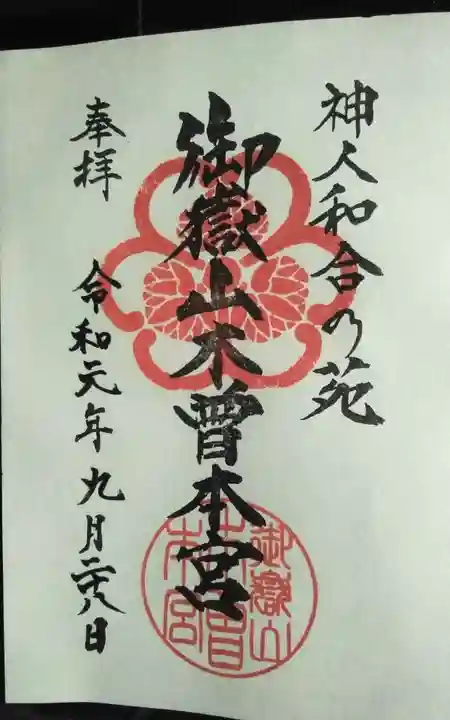 神人和合の苑
御嶽山木曽本宮
奉拝
令和元年九月二十八日
御嶽山
木曽
本宮